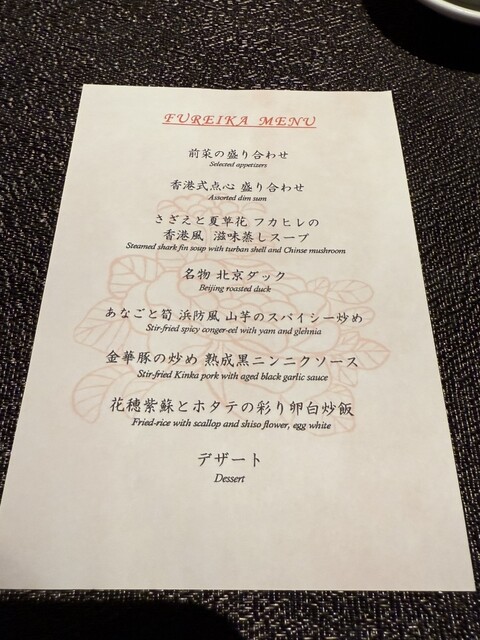 FUREIKA MENU
前菜の盛り合わせ
Selected appetizers
香港式点心 盛り合わせ
Assorted dim sum
さざえと夏草花 フカヒレの
香港風 滋味蒸しスープ
Steamed shark fin soup with turban shell and Chinse mushroom
名物 北京ダック
Beijing roasted duck
あなごと筍 浜防風 山芋のスパイシー炒め
Stir-fried spicy conger-eel with yam and glehnia
金華豚の炒め 熟成黒ニンニクソース
Stir-fried Kinka pork with aged black garlic sauce
花穂紫蘇とホタテの彩り卵白炒飯
Fried-rice with scallop and shiso flower, egg white
デザート
Dessert